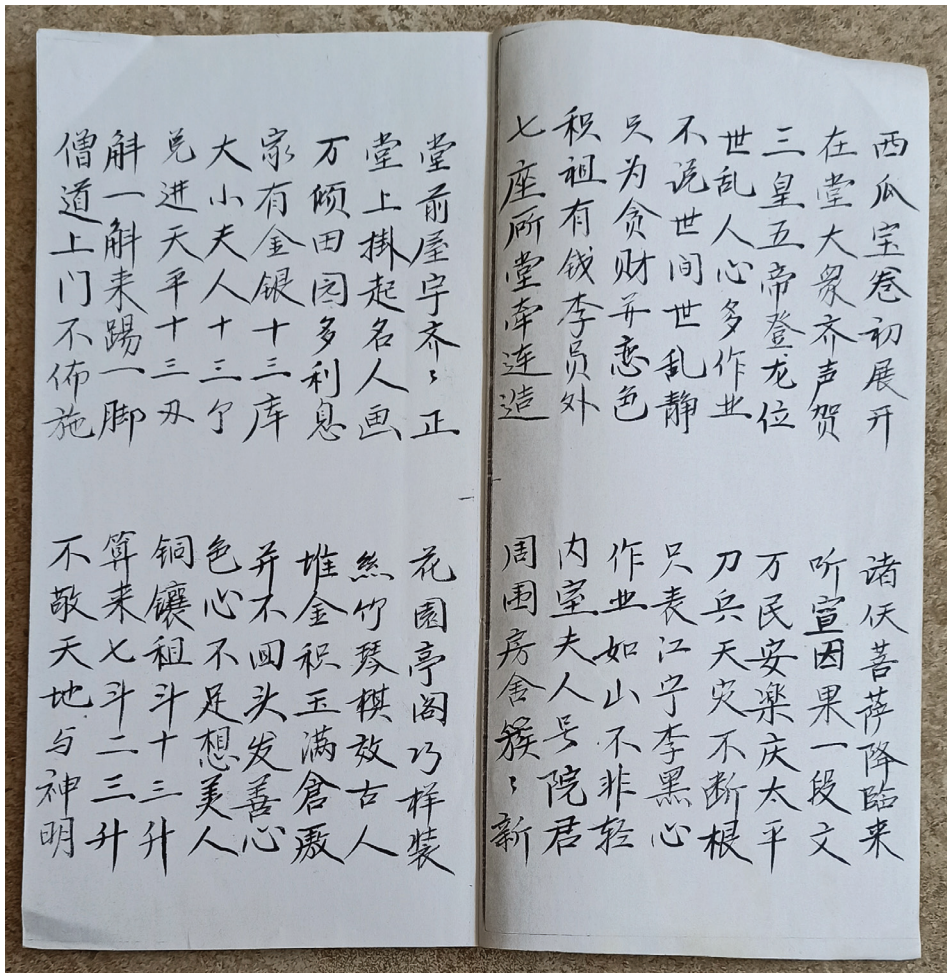 西瓜宝卷初展开 诸仸菩萨降臨来
在堂大衆齐声贺 听宣因果一段文
三皇五帝登龙位 万民安楽庆太平
世乱人心多作业 刀兵天灾不断根
不说世间世乱静 只表江宁李黑心
只为贪财并恋色 作业如山不非轻
积祖有钱李员外 内室夫人号院君
七座所堂牵连造 周围房舍簇〻新
堂前屋宇齐〻正 花園亭阁巧样装
堂上掛起名人画 絲竹琴棋效古人
万倾田园多利息 堆金积玉满倉廒
家有金银十三库 并不回头发善心
大小夫人十三个 色心不足想美人
兑进天平十三刄 铜镶租斗十三升
斛一斛来踢一脚 算来七斗二三升
僧道上门不佈施 不敬天地与神明